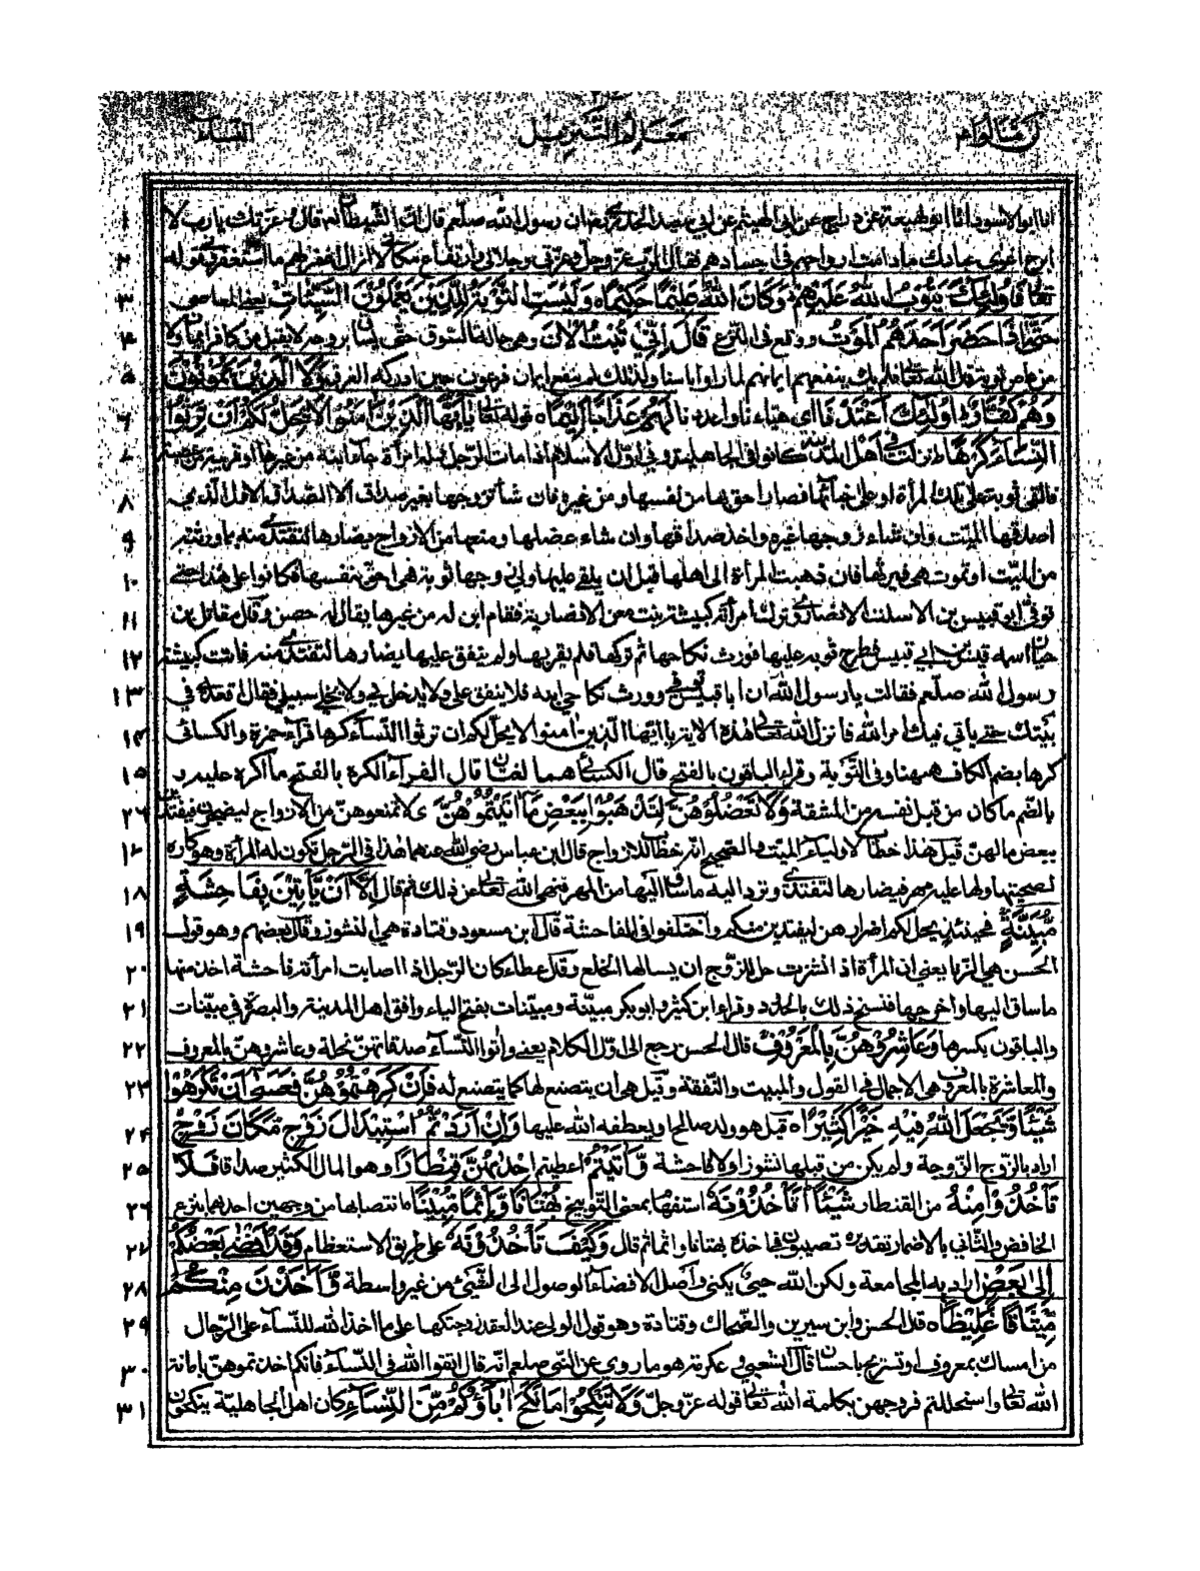 لن تنالوا ٤ معالم التنزيل النساء
١ انا ابو الاسود انا ابن لهيعة عن دراج عن ابي الهيثم عن ابي سعيد الخدري ان رسول الله صلعم قال ان الشيطان قال وعزتك يا رب لا
٢ ابرح اغوي عبادك ما دامت ارواحهم في اجسادهم فقال الرب عز وجل وعزتي وجلالي وارتفاع مكاني لا ازال اغفر لهم ما استغفروني قوله
٣ تعالى فَاُولٰئِكَ يَتُوْبُ اللّٰهُ عَلَيْهِمْ وَكَانَ اللّٰهُ عَلِيْمًا حَكِيْمًا ه وَلَيْسَتِ التَّوْبَةُ لِلَّذِيْنَ يَعْمَلُوْنَ السَّيِّئَاتِ يعني المعاصي
٤ حَتّٰى اِذَا حَضَرَ اَحَدَهُمُ الْمَوْتُ ووقع في النزع قَالَ اِنِّيْ تُبْتُ الْاٰنَ وهي حالة السوق حين يساق بروحه لا يقبل من كافر ايمان ولا
٥ من عاص توبة قال الله تعالى فلم يك ينفعهم ايمانهم لما راوا باسنا ولذلك لم ينفع ايمان فرعون حين ادركه الغرق وَلَا الَّذِيْنَ يَمُوْتُوْنَ
٦ وَهُمْ كُفَّارٌ اُولٰئِكَ اَعْتَدْنَا اي هيأنا واعددنا لَهُمْ عَذَابًا اَلِيْمًا ه قوله تعالى يٰاَيُّهَا الَّذِيْنَ اٰمَنُوْا لَا يَحِلُّ لَكُمْ اَنْ تَرِثُوا
٧ النِّسَاءَ كَرْهًا نزلت في اهل المدينة كانوا في الجاهلية وفي اول الاسلام اذا مات الرجل وله امرأة جاء ابنه من غيرها او قريبه من عصبته
٨ فالقى ثوبه على تلك المرأة او على خبائها فصار احق بها من نفسها ومن غيره فان شاء تزوجها بغير صداق الا الصداق الاول الذي
٩ اصدقها الميت وان شاء زوجها غيره واخذ صداقها وان شاء عضلها ومنعها من الازواج يضارها لتفتدي منه بما ورثته
١٠ من الميت او تموت هي فيرثها فان ذهبت المرأة الى اهلها قبل ان يلقي عليها ولي زوجها ثوبه فهي احق بنفسها فكانوا على هذا حتى
١١ توفي ابو قيس بن الاسلت الانصاري وترك امرأته كبيشة بنت معن الانصارية فقام ابن له من غيرها يقال له حصن وقال مقاتل بن
١٢ حيان اسمه قيس بن ابي قيس فطرح ثوبه عليها فورث نكاحها ثم تركها فلم يقربها ولم ينفق عليها يضارها لتفتدي منه فاتت كبيشة
١٣ رسول الله صلعم فقالت يا رسول الله ان ابا قيس توفي وورث نكاحي ابنه فلا ينفق علي ولا يدخل بي ولا يخلي سبيلي فقال اقعدي في
١٤ بيتك حتى يأتي فيك امر الله فانزل الله تعالى هذه الاية يا ايها الذين امنوا لا يحل لكم ان ترثوا النساء كرها قرأ حمزة والكسائي
١٥ كرها بضم الكاف ههنا وفي التوبة وقرأ الباقون بالفتح قال الكسائي هما لغتان قال الفراء الكره بالفتح ما اكره عليه و
١٦ بالضم ما كان من قبل نفسه من المشقة وَلَا تَعْضُلُوْهُنَّ لِتَذْهَبُوْا بِبَعْضِ مَا اٰتَيْتُمُوْهُنَّ اي لا تمنعوهن من الازواج ليضجرن فيفتدين
١٧ ببعض مالهن قيل هذا خطاب لاولياء الميت والصحيح انه خطاب للازواج قال ابن عباس رضي الله عنهما هذا في الرجل تكون له المرأة وهو كاره
١٨ لصحبتها ولها عليه مهر فيضارها لتفتدي وترد اليه ما ساق اليها من المهر فنهى الله تعالى عن ذلك ثم قال اِلَّا اَنْ يَّأْتِيْنَ بِفَاحِشَةٍ
١٩ مُّبَيِّنَةٍ فحينئذ يحل لكم اضرارهن ليفتدين منكم واختلفوا في الفاحشة قال ابن مسعود وقتادة هي النشوز وقال بعضهم وهو قول
٢٠ الحسن هي الزنا يعني ان المرأة اذا نشزت حل للزوج ان يسالها الخلع وقال عطاء كان الرجل اذا اصابت امرأته فاحشة اخذ منها
٢١ ما ساق اليها واخرجها فنسخ ذلك بالحدود وقرأ ابن كثير وابو بكر مبينة ومبينات بفتح الياء وافق اهل المدينة والبصرة في مبينات
٢٢ والباقون بكسرها وَعَاشِرُوْهُنَّ بِالْمَعْرُوْفِ قال الحسن رجع الى اول الكلام يعني واتوا النساء صدقاتهن نحلة وعاشروهن بالمعروف
٢٣ والمعاشرة بالمعروف هي الاجمال في القول والمبيت والنفقة وقيل هي ان يتصنع لها كما يتصنع له فَاِنْ كَرِهْتُمُوْهُنَّ فَعَسٰى اَنْ تَكْرَهُوْا
٢٤ شَيْئًا وَّيَجْعَلَ اللّٰهُ فِيْهِ خَيْرًا كَثِيْرًا ه قيل هو ولد صالح او يعطفه الله عليها وَاِنْ اَرَدْتُّمُ اسْتِبْدَالَ زَوْجٍ مَّكَانَ زَوْجٍ
٢٥ اراد بالزوج الزوجة ولم يكن من قبلها نشوز ولا فاحشة وَّاٰتَيْتُمْ اعطيتم اِحْدٰىهُنَّ قِنْطَارًا وهو المال الكثير صداقا فَلَا
٢٦ تَأْخُذُوْا مِنْهُ من القنطار شَيْئًا اَتَأْخُذُوْنَهٗ استفهام بمعنى التوبيخ بُهْتَانًا وَّاِثْمًا مُّبِيْنًا انتصابهما من وجهين احدهما بنزع
٢٧ الخافض والثاني بالاضمار تقديره تصيبون في اخذه بهتانا واثما ثم قال وَكَيْفَ تَأْخُذُوْنَهٗ على طريق الاستعظام وَقَدْ اَفْضٰى بَعْضُكُمْ
٢٨ اِلٰى بَعْضٍ اراد به المجامعة ولكن الله حيي يكني واصل الافضاء الوصول الى الشيء من غير واسطة وَّاَخَذْنَ مِنْكُمْ
٢٩ مِّيْثَاقًا غَلِيْظًا ه قال الحسن وابن سيرين والضحاك وقتادة وهو قول الولي عند العقد زوجتكها على ما اخذ الله للنساء على الرجال
٣٠ من امساك بمعروف او تسريح باحسان قال الشعبي وعكرمة هو ما روي عن النبي صلعم انه قال اتقوا الله في النساء فانكم اخذتموهن بامانة
٣١ الله تعالى واستحللتم فروجهن بكلمة الله تعالى قوله عز وجل وَلَا تَنْكِحُوْا مَا نَكَحَ اٰبَاؤُكُمْ مِّنَ النِّسَاءِ كان اهل الجاهلية ينكحون